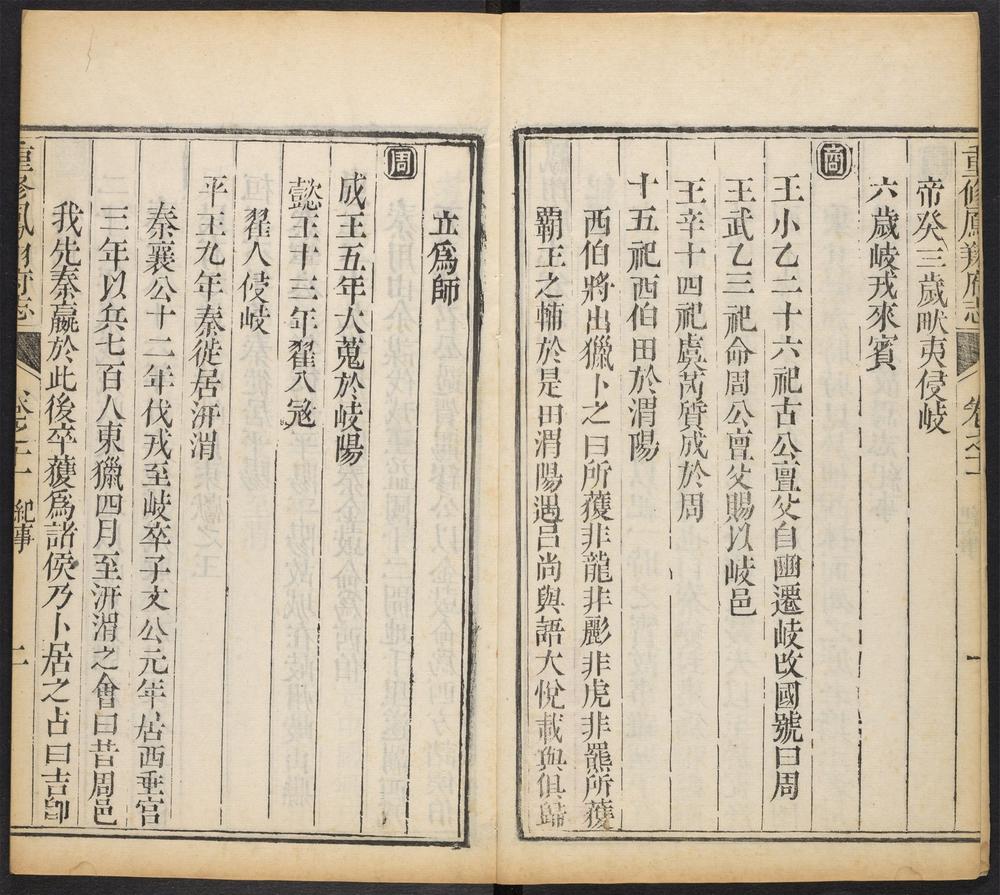 重修鳳翔府志
卷之一
一
帝癸三歲畎夷侵岐
六歲岐戎來賓
商
王小乙二十六祀古公亶父自豳遷岐改國號曰周
王武乙三祀命周公亶父賜以岐邑
王辛十四祀虞芮質成於周
十五祀西伯田於渭陽
西伯將出獵卜之曰所獲非龍非彲非虎非羆所獲
霸王之輔於是田渭陽遇吕尚與語大悅載與俱歸
立爲師
周
成王五年大蒐於岐陽
懿王十三年翟人㓂
翟人侵岐
平王九年秦徙居汧渭
秦襄公十二年伐戎至岐卒子文公元年居西垂宫
三年以兵七百人東獵四月至汧渭之會曰昔周邑
我先秦嬴於此後卒獲爲諸侯乃卜居之占曰吉卽
重修鳳翔府志
紀事
二